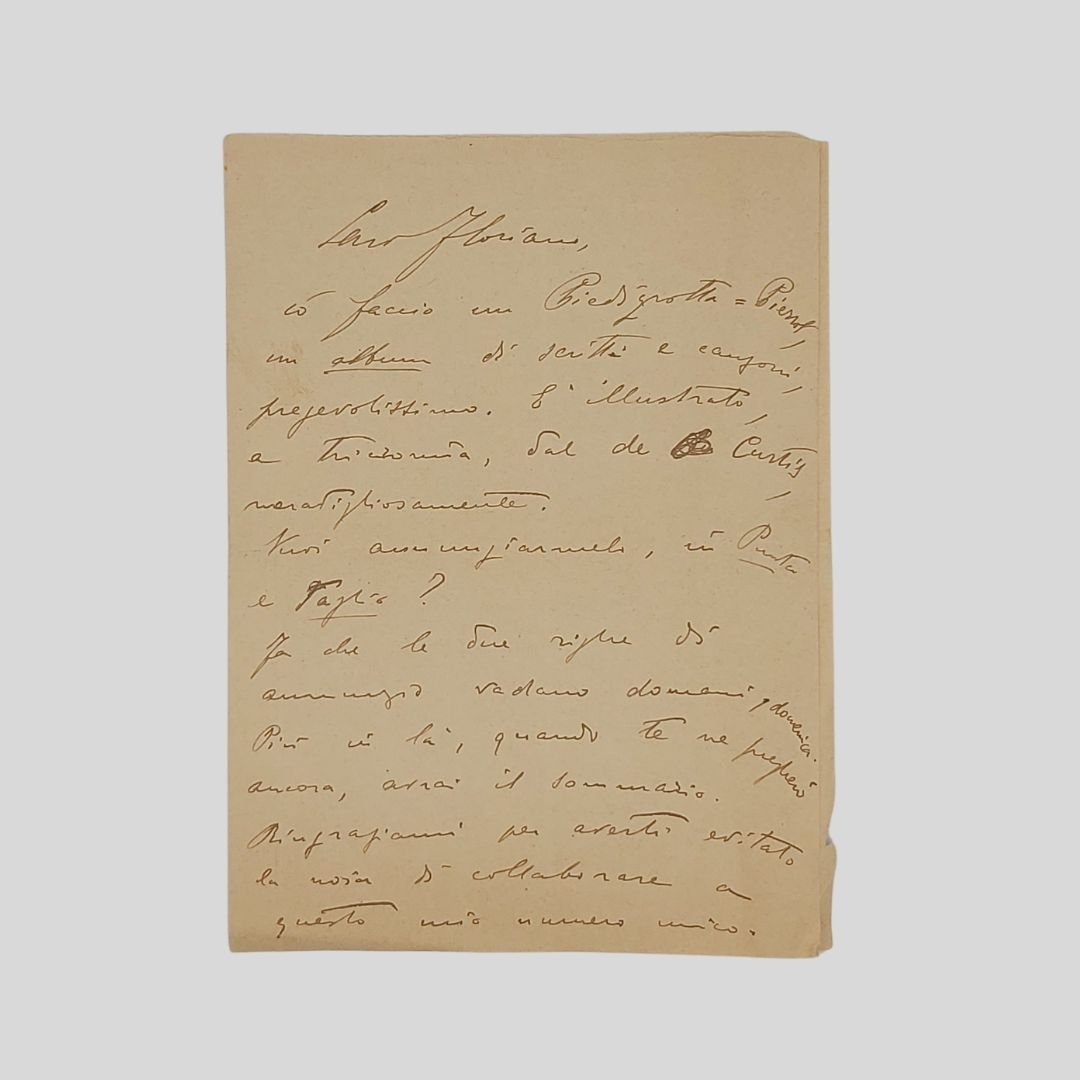 Caro Floriano,
io faccio un Piedigrotta = Pierrot,
un album di scritti e canzoni,
pregevolissimo. E' illustrato,
a tricromia, dal de Curtis,
meravigliosamente.
Vuoi annunziarmelo, in Punta
e Taglio?
Fa che le due righe di
annunzio vadano domani, domenica.
Più in là, quando te ne pregherò
ancora, avrai il sommario.
Ringraziami per averti evitato
la noia di collaborare a
questo mio numero unico.